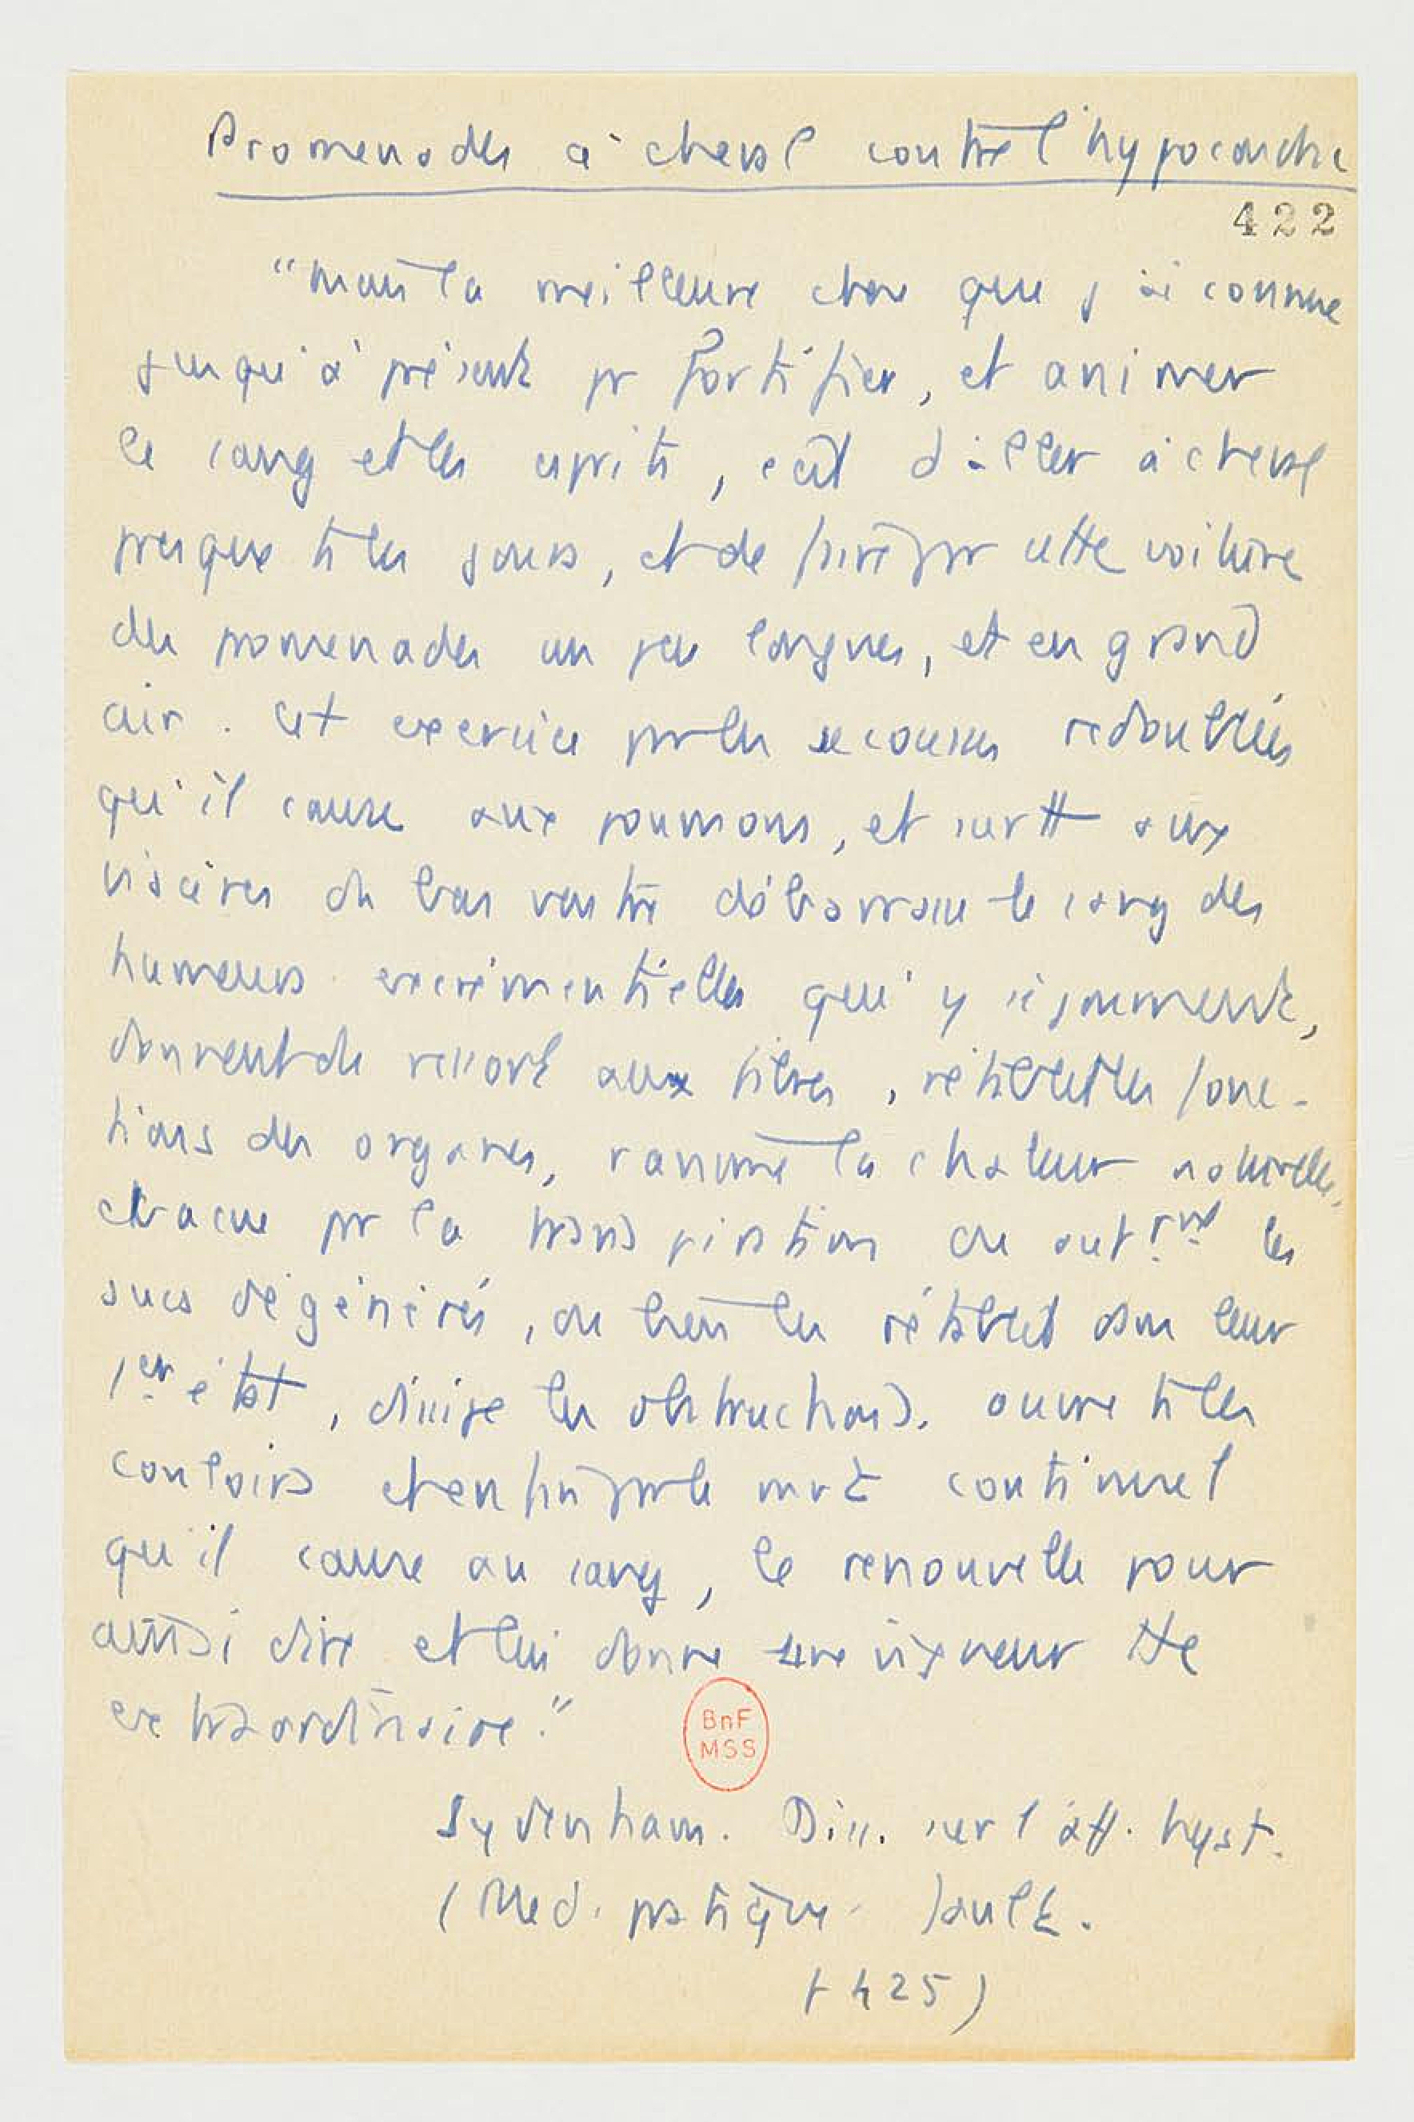 Promenades à cheval contre l'hypocondrie
422
"mais la meilleure chose que j'ai connue
jusqu'à présent pr fortifier, et animer
le sang et les esprits, c'est d'aller à cheval
presque ts les jours, et de faire par cette voiture
des promenades un peu longues, et en grand
air. Cet exercice par les secousses redoublées
qu'il cause aux poumons, et surtt aux
viscères du bas ventre débarrasse le sang des
humeurs excrémentielles qui y séjournent,
donnent du ressort aux fibres, rétablit les fonc-
tions des organes, ranime la chaleur naturelle,
évacue par la transpiration ou autrmt les
sucs dégénérés, ou bien les rétablit dans leur
1er état, divise les obstructions, ouvre ts les
couloirs et enfin par le mvt continuel
qu'il cause au sang, le renouvelle pour
ainsi dire et lui donne une vigueur tte
extraordinaire."
BnF
MSS
Sydenham. Diss. sur l'aff. hyst.
(Med. pratique. Jault.
p 425)